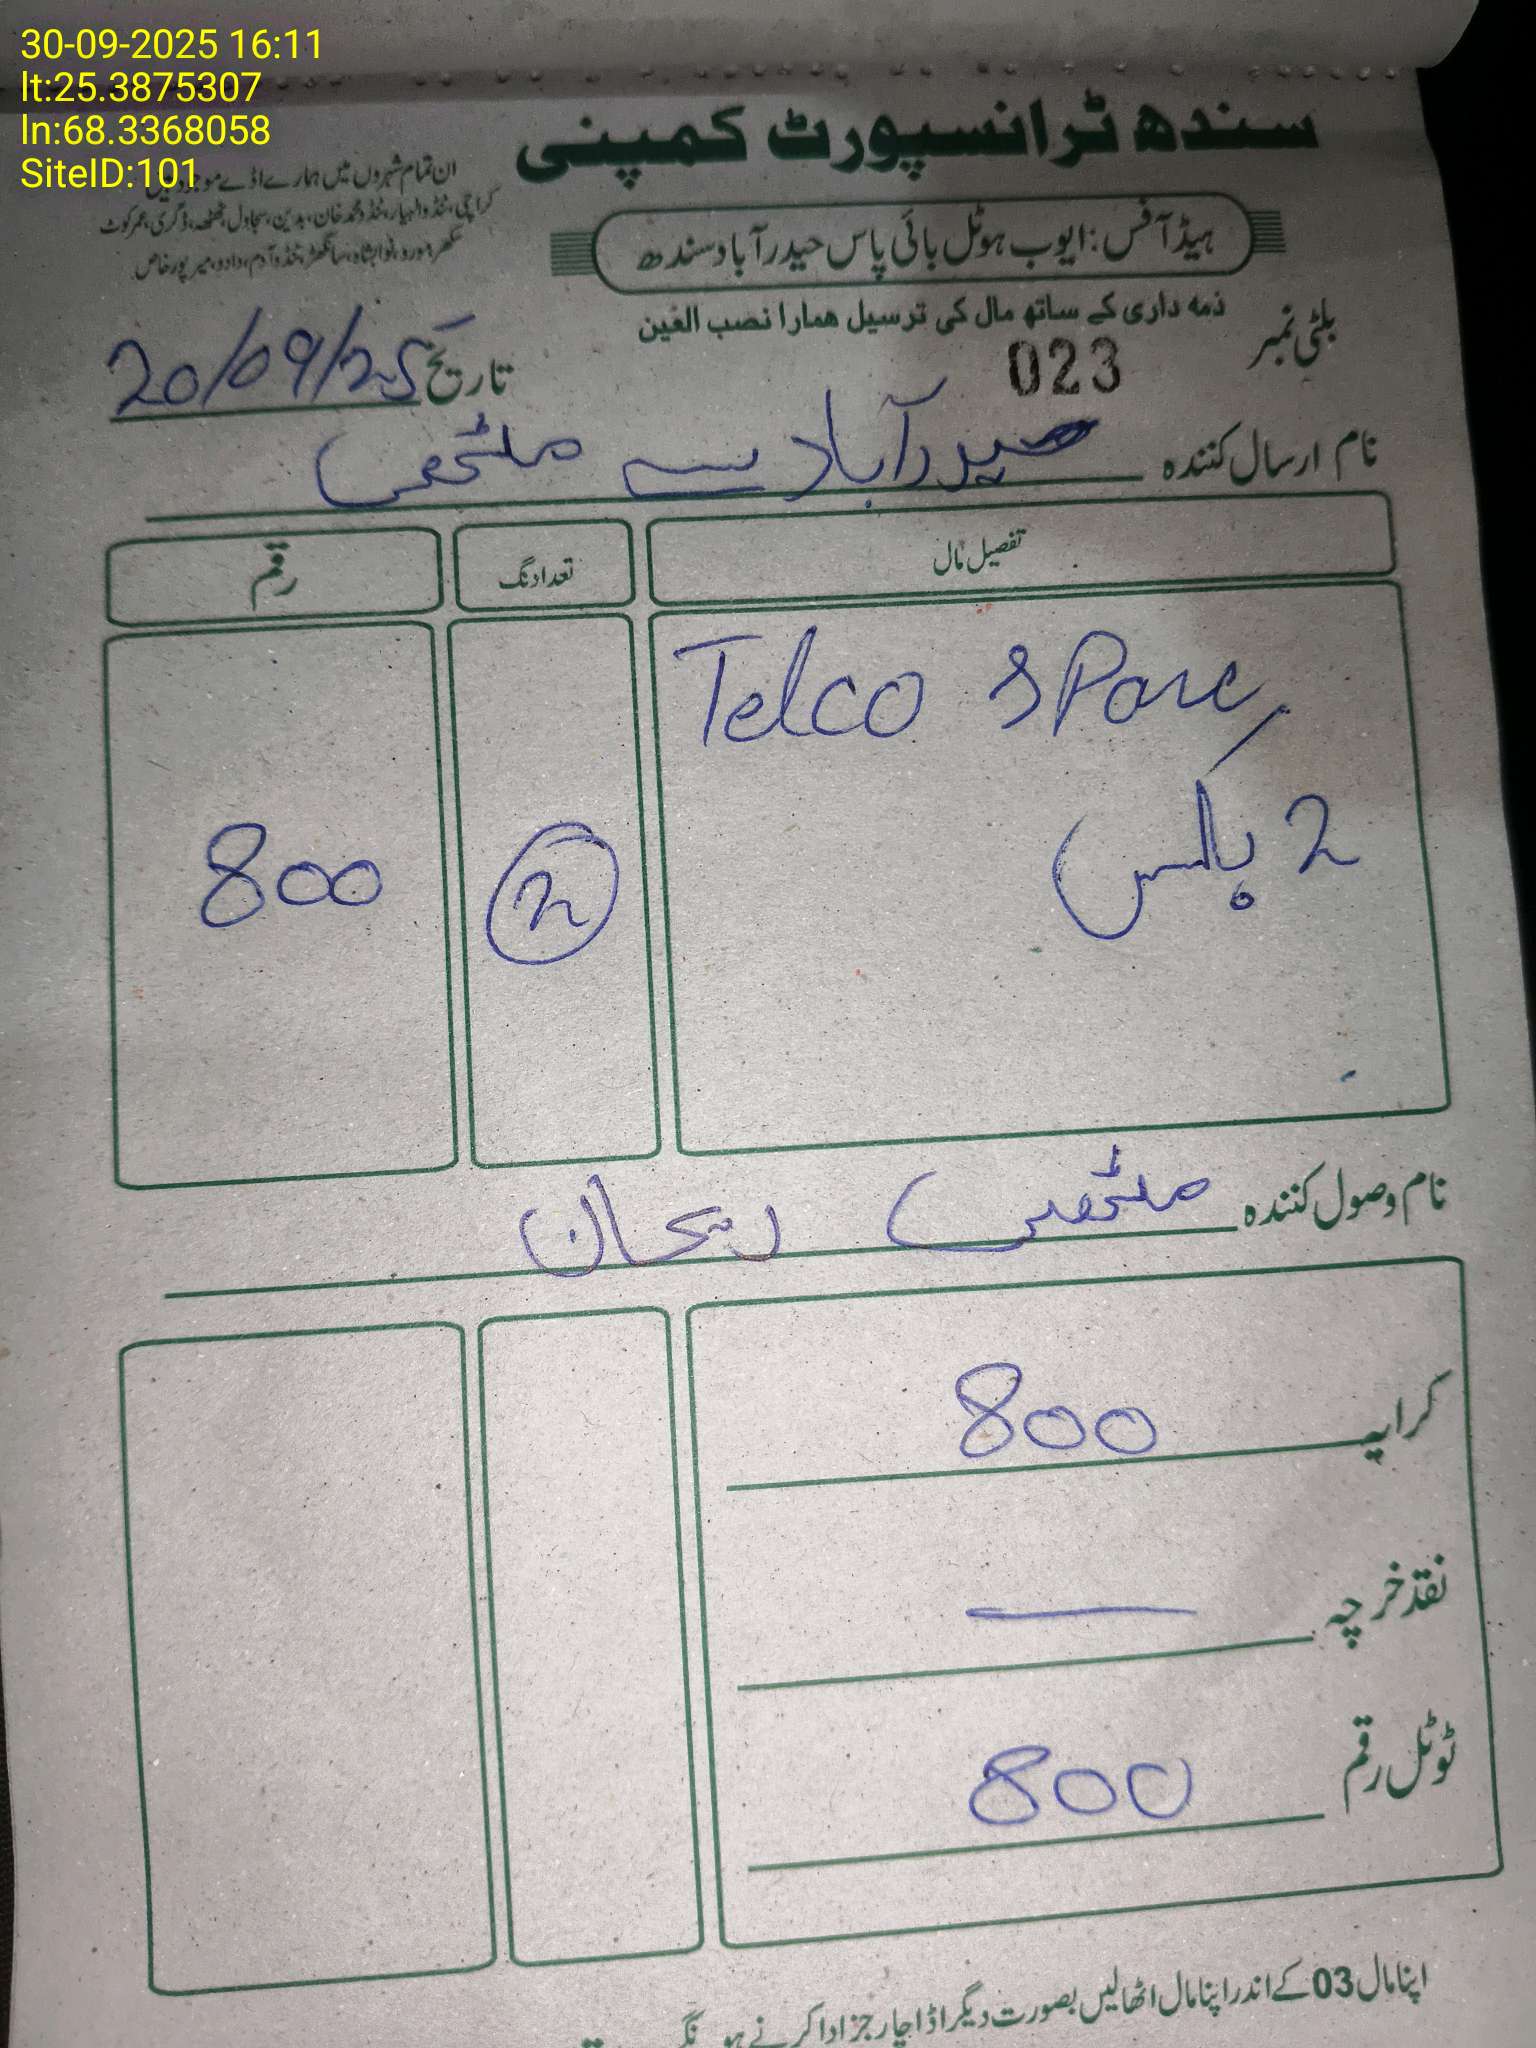 30-09-2025 16:11
lt:25.3875307
ln:68.3368058
SiteID:101
سندھ ٹرانسپورٹ کمپنی
ان تمام شہروں میں ہمارے اڈے موجود ہیں
کراچی، ٹنڈوالہیار، ٹنڈو محمد خان، بدین، سجاول، ٹھٹھہ، ڈگری، عمرکوٹ
سکھر، مورو، نوابشاہ، سانگھڑ، ٹنڈوآدم، دادو، میرپورخاص
ہیڈ آفس: ایوب ہوٹل بائی پاس حیدرآباد سندھ
ذمہ داری کے ساتھ مال کی ترسیل ھمارا نصب العین
بلٹی نمبر 023
تاریخ 20/09/25
نام ارسال کنندہ حیدرآباد سے مٹھی
تفصیل مال تعداد نگ رقم
Telco Spare
2 باکس 2 800
نام وصول کنندہ مٹھی ریحان
کرایہ 800
نقد خرچہ —
ٹوٹل رقم 800
اپنا مال 03 کے اندر اپنا مال اٹھالیں بصورت دیگر اڈا چارجز ادا کرنے ہونگے